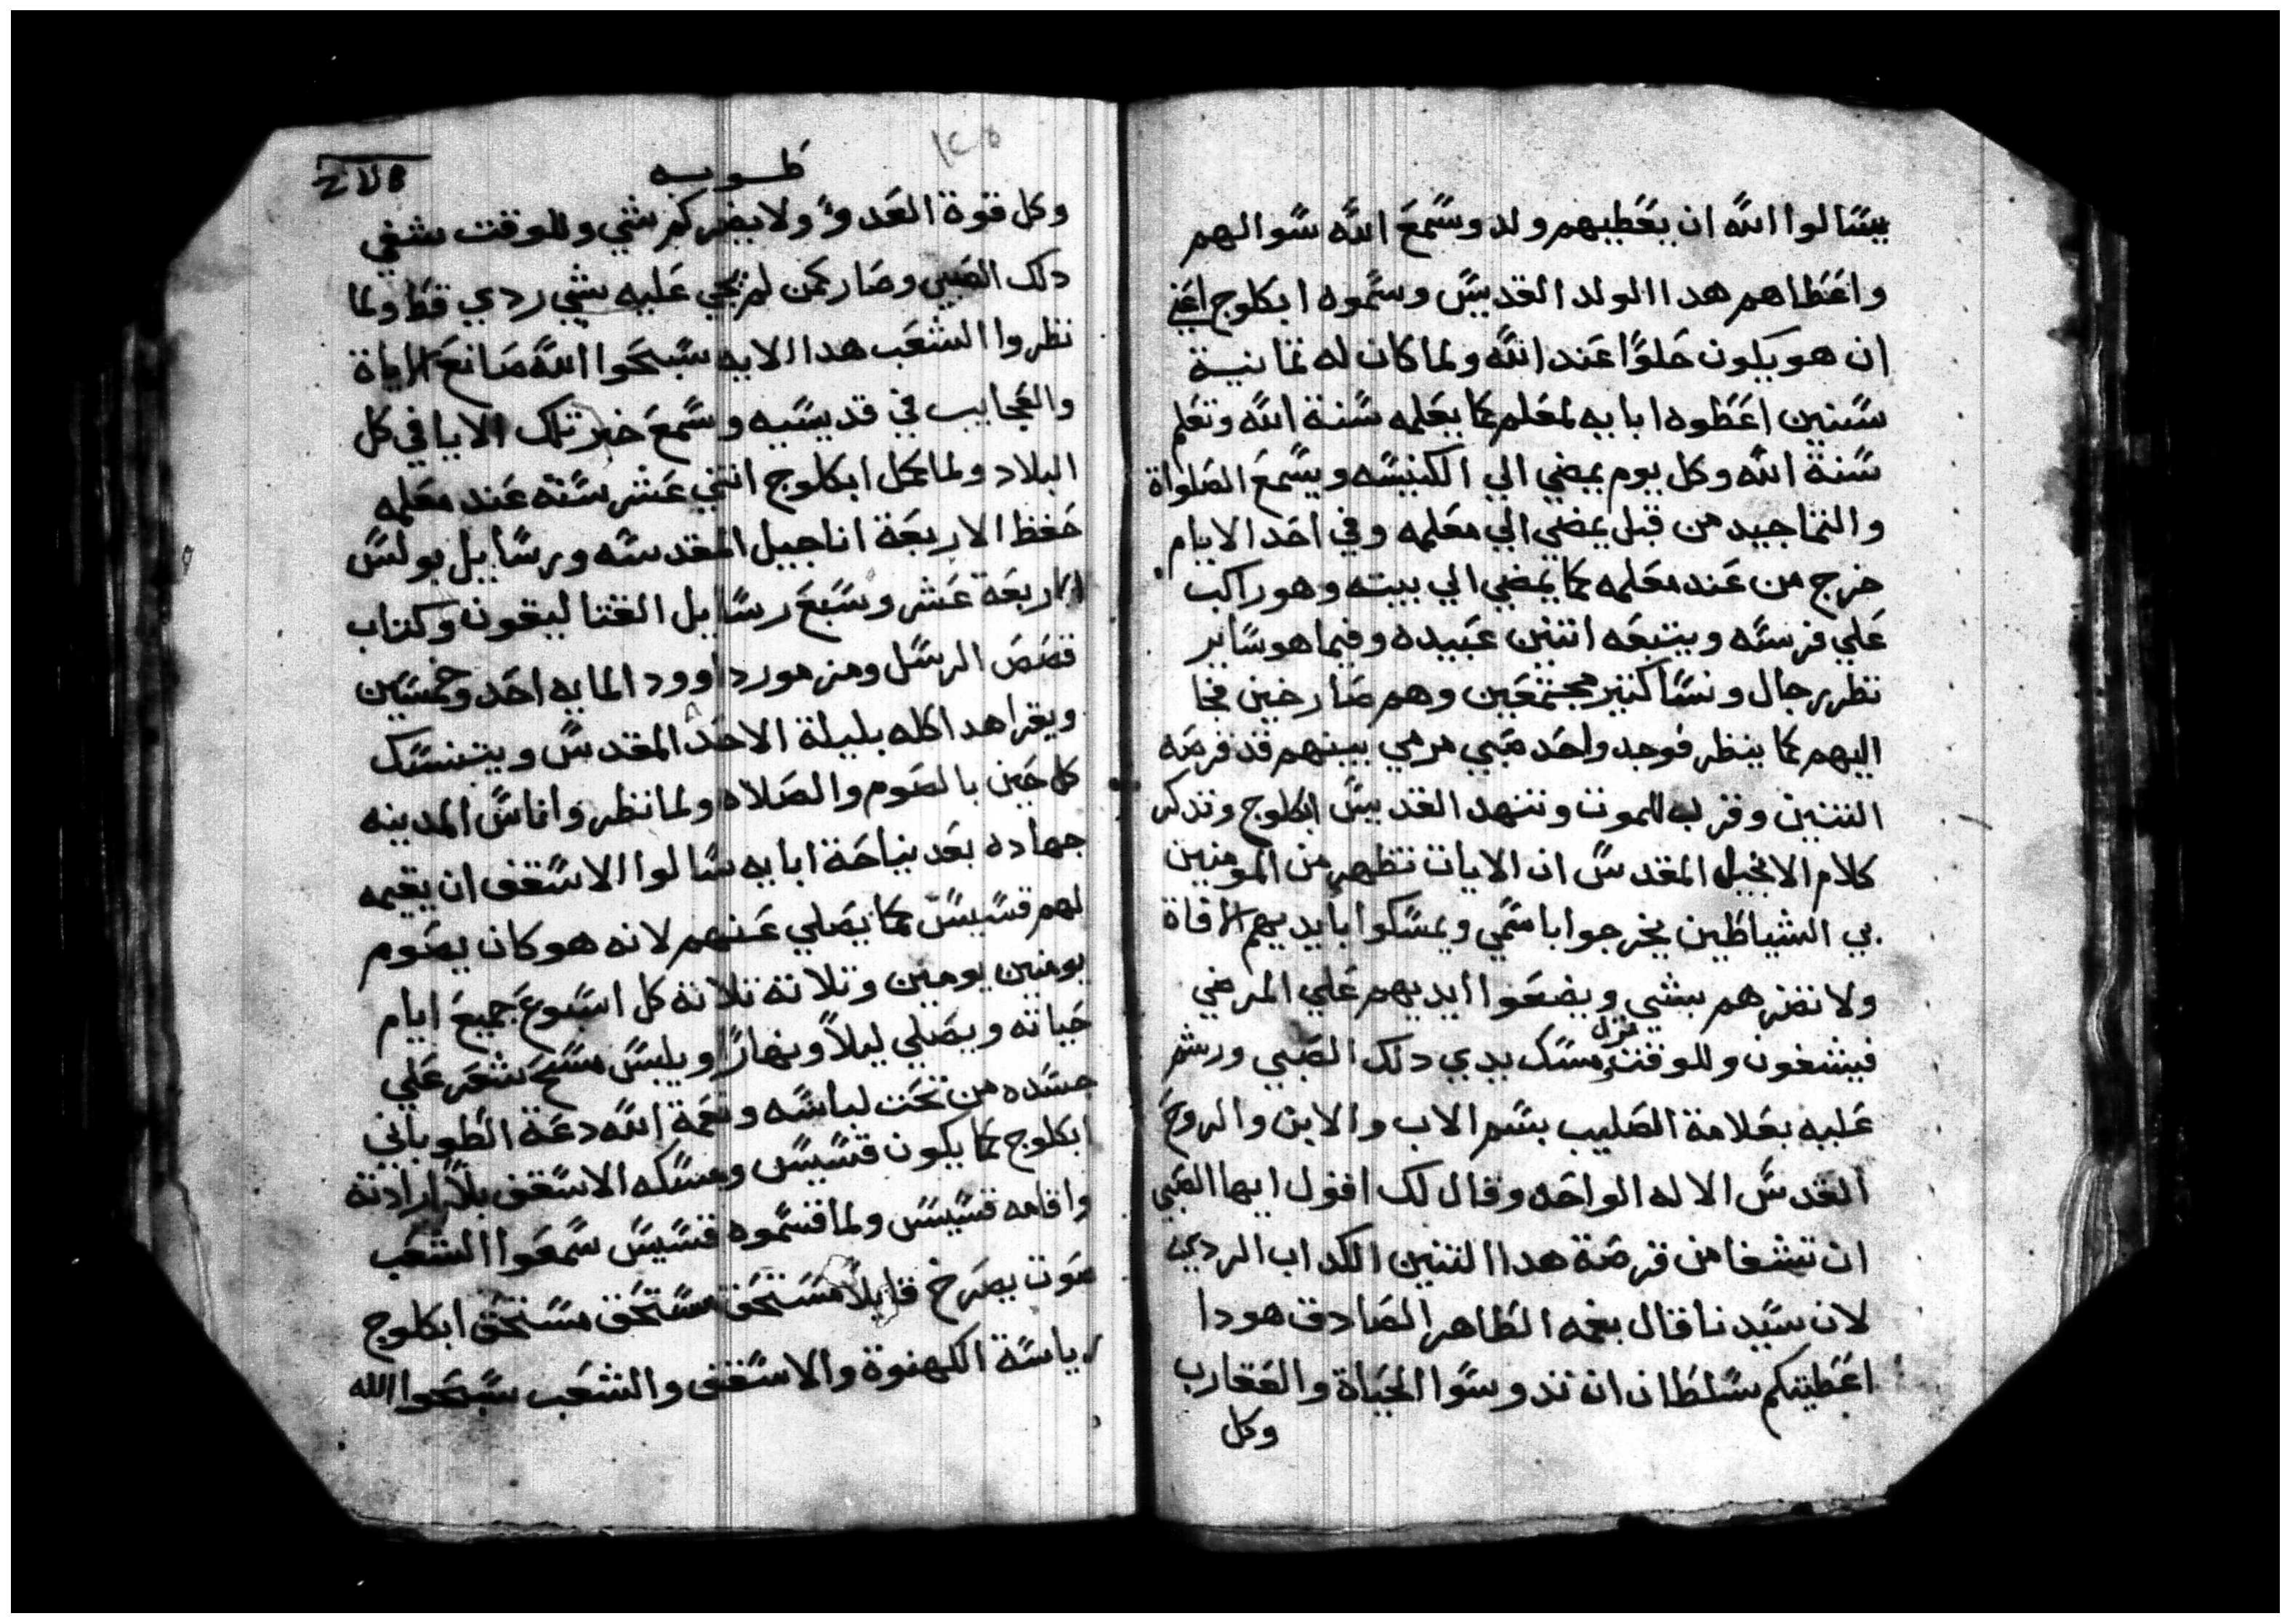 يسالوا الله ان يعطيهم ولد وسمع الله سوالهم
واعطاهم هدا الولد القديس وسموه ابكلوج اعني
ان هو يكون حلوا عند الله ولما كان له تمانية
سنين اعطوه ابايه لمعلم كما يعلمه سنة الله وتعلم
سنة الله وكل يوم يمضي الي الكنيسه ويسمع الصلواة
والتماجيد من قبل يمضي الي معلمه وفي احد الايام
خرج من عند معلمه كما يمضي الي بيته وهو راكب
علي فرسه ويتبعه اتنين عبيده وفيما هو ساير
نظر رجال ونسا كتير مجتمعين وهم صارخين فجا
اليهم كما ينظر فوجد واحد صبي مرمي بينهم قد قرصه
التنين وقرب للموت وتنهد القديس ابكلوج وتدكر
كلام الانجيل المقدس ان الايات تظهر من المومنين
بي الشياطين يخرجوا باسمي ويمسكوا بايديهم الافاة
ولا تضرهم بشي ويضعوا ايديهم علي المرضي
فيشفون وللوقت نزل ومسك يدي دلك الصبي ورشم
عليه بعلامة الصليب بسم الاب والابن والروح
القدس الاله الواحد وقال لك اقول ايها الصبي
ان تشفا من قرصة هدا التنين الكداب الردي
لان سيدنا قال بفمه الطاهر الصادق هودا
اعطيتكم سلطان ان تدوسوا الحياة والعقارب
وكل
طوبه
١٢٥
وكل قوة العدو ولا يضركم شي وللوقت شفي
دلك الصبي وصار كمن لم يجي عليه شي ردي قط ولما
نظروا الشعب هدا الايه سبحوا الله صانع الاياة
والعجايب في قديسيه وسمع خبر تلك الايا في كل
البلاد ولما كمل ابكلوج اتني عشر سنة عند معلمه
حفظ الاربعة اناجيل المقدسه ورسايل بولس
الاربعة عشر وسبع رسايل القتاليقون وكتاب
قصص الرسل ومزمور داوود المايه احد وخمسين
ويقرا هدا كله بليلة الاحد المقدس ويتنسك
كل حين بالصوم والصلاه ولما نظروا ناس المدينه
جهاده بعد نياحة ابايه سالوا الاسقف ان يقيمه
لهم قسيس كما يصلي عنهم لانه هو كان يصوم
يومين يومين وتلاتة تلاتة كل اسبوع جميع ايام
حياته ويصلي ليلا ونهارا ويلبس مسح شعر علي
جسده من تحت لباسه ونعمة الله دعة الطوباني
ابكلوج كما يكون قسيس ومسكه الاسقف بلا ارادته
واقامه قسيس ولما قسموه قسيس سمعوا الشعب
صوت يصرخ قايلا مستحق مستحق مستحق ابكلوج
رياسة الكهنوة والاسقف والشعب سبحوا الله